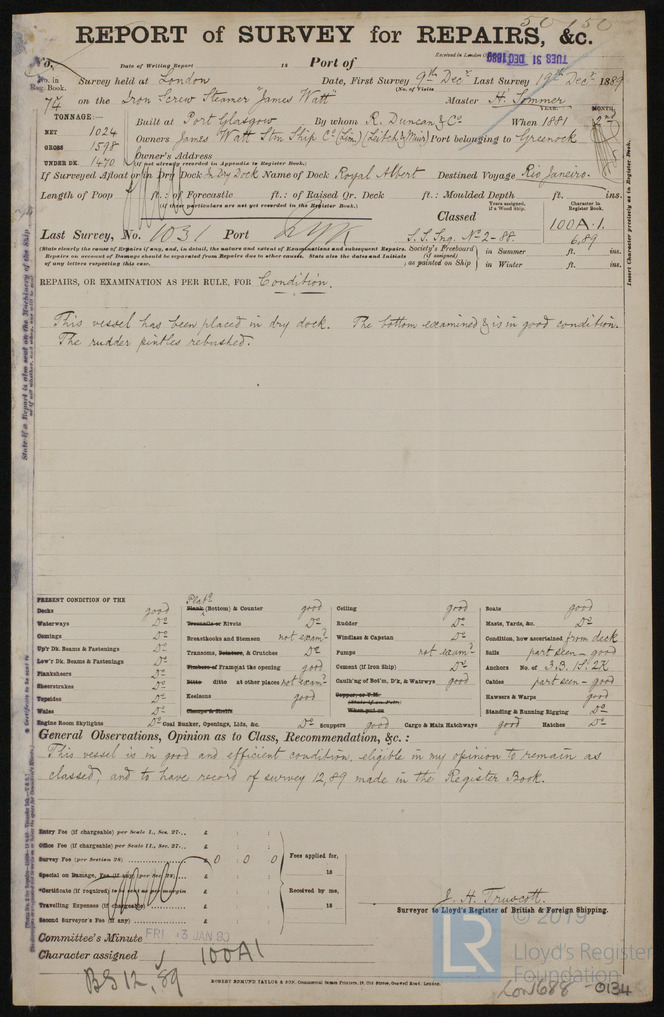 50 / 50
REPORT of SURVEY for REPAIRS, &c.
No.
Date of Writing Report 18 Port of
Received in London
TUES 31 DEC 1889
No. in Reg. Book. Survey held at London Date, First Survey 9th Decr Last Survey 19th Decr 1889
(No. of Visits
74 on the Iron Screw Steamer "James Watt" Master H. Sommer
TONNAGE:— YEAR. MONTH.
NET 1024 Built at Port Glasgow By whom R. Duncan & Co When 1881 2nd
GROSS 1598 Owners James Watt Stm Ship Co (Lim) (Leitch & Muir) Port belonging to Greenock
UNDER DK. 1470 Owner's Address
(if not already recorded in Appendix to Register Book.)
If Surveyed Afloat or in Dry Dock In Dry Dock Name of Dock Royal Albert Destined Voyage Rio Janeiro.
Length of Poop ft. : of Forecastle ft. : of Raised Qr. Deck ft. : Moulded Depth ft. ins.
(if these particulars are not yet recorded in the Register Book.)
Years assigned, if a Wood Ship. Character in Register Book.
Classed 100A.1.
Last Survey, No. 1031 Port S.S. Sng. No 2-88. 6,89
(State clearly the cause of Repairs if any, and, in detail, the nature and extent of Examinations and subsequent Repairs.
Repairs on account of Damage should be separated from Repairs due to other causes. State also the dates and Initials
of any letters respecting this case.
Society's Freeboard (if assigned) as painted on Ship in Summer ft. ins.
in Winter ft. ins.
REPAIRS, OR EXAMINATION AS PER RULE, FOR Condition.
This vessel has been placed in dry dock. The bottom examined & is in good condition.
The rudder pintles rebushed.
PRESENT CONDITION OF THE
Decks good
Waterways Do
Comings Do
Up'r Dk. Beams & Fastenings Do
Low'r Dk. Beams & Fastenings Do
Planksheers Do
Sheerstrakes Do
Topsides Do
Wales Do
Engine Room Skylights Do
Plate
Plank (Bottom) & Counter good
Treenails or Rivets Do
Breasthooks and Stemson not examd
Transoms, Pointers, & Crutches Do
Timbers of Frame at the opening good
Ditto ditto at other places not examd
Keelsons good
Clamps & Shelfs
Coal Bunker, Openings, Lids, &c. Do
Scuppers good
Ceiling good
Rudder Do
Windlass & Capstan Do
Pumps not examd
Cement (if Iron Ship) Do
Caulk'ng of Bot'm, D'k, & Waterways good
Copper, or Y.M.
(State if on Felt)
When put on
Cargo & Main Hatchways good
Boats good
Masts, Yards, &c. Do
Condition, how ascertained from deck
Sails part seen - good
Anchors No. of 3.B. 1S. 2K
Cables part seen - good
Hawsers & Warps good
Standing & Running Rigging Do
Hatches Do
General Observations, Opinion as to Class, Recommendation, &c. :
This vessel is in good and efficient condition, eligible in my opinion to remain as
classed, and to have record of survey 12,89 made in the Register Book.
Entry Fee (if chargeable) per Scale I., Sec. 27... £ : :
Office Fee (if chargeable) per Scale II., Sec. 27... £ : :
Survey Fee (per Section 28) £ 0 : 0 : 0
Special on Damage, Fee (if any) (per Sec. 28) £ : :
Certificate (if required) to be sent as per margin £ : :
Travelling Expenses (if chargeable) £ : :
Second Surveyor's Fee (if any) £ : :
Fees applied for, 18
Received by me, 18
J. H. Truscott.
Surveyor to Lloyd's Register of British & Foreign Shipping.
Committee's Minute FRI 3 JAN 90
Character assigned 100A1
BS 12, 89
ROBERT EDMUND TAYLOR & SON, Commercial Steam Printers, 19, Old Street, Goswell Road, London.
Insert Character precisely as in Register Book.
State if a Report is also sent on the Machinery of the Ship
© 2019
LR
Lloyd's Register
Foundation
Lon 688 - 0134